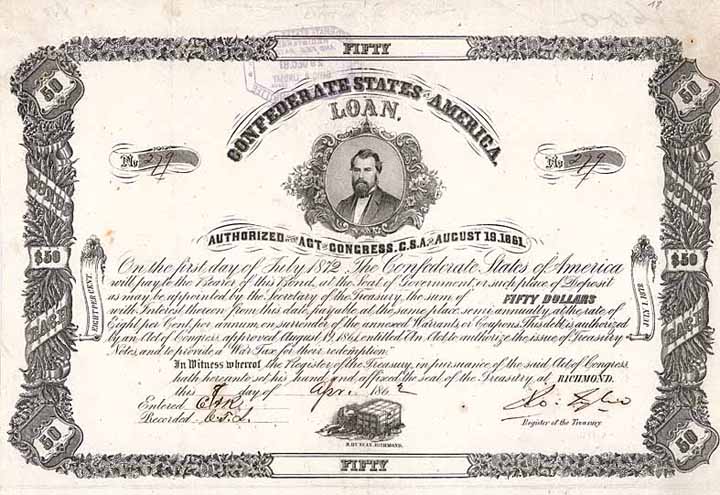 FIFTY
50
50
CONFEDERATE STATES OF AMERICA,
LOAN.
No 279
No 279
AUTHORIZED BY ACT OF CONGRESS, C.S.A. OF AUGUST 19, 1861.
$50
$50
EIGHT PER CENT.
JULY 1, 1872
On the first day of July 1872 The Confederate States of America
will pay to the Bearer of this Bond, at the Seat of Government, or such place of Deposit
as may be appointed by the Secretary of the Treasury, the sum of FIFTY DOLLARS
with Interest thereon from this date, payable at the same place semi annually, at the rate of
Eight per Cent, per annum, on surrender of the annexed Warrants, or Coupons. This debt is authorized
by an Act of Congress, approved August 19, 1861, entitled An Act to authorize the issue of Treasury
Notes, and to provide a War Tax for their redemption.
In Witness whereof the Register of the Treasury, in pursuance of the said Act of Congress,
hath hereunto set his hand, and affixed the seal of the Treasury, at RICHMOND.
this day of Apr. 1862
Entered
Recorded
Register of the Treasury
B. DUNCAN, RICHMOND.
50
50
FIFTY